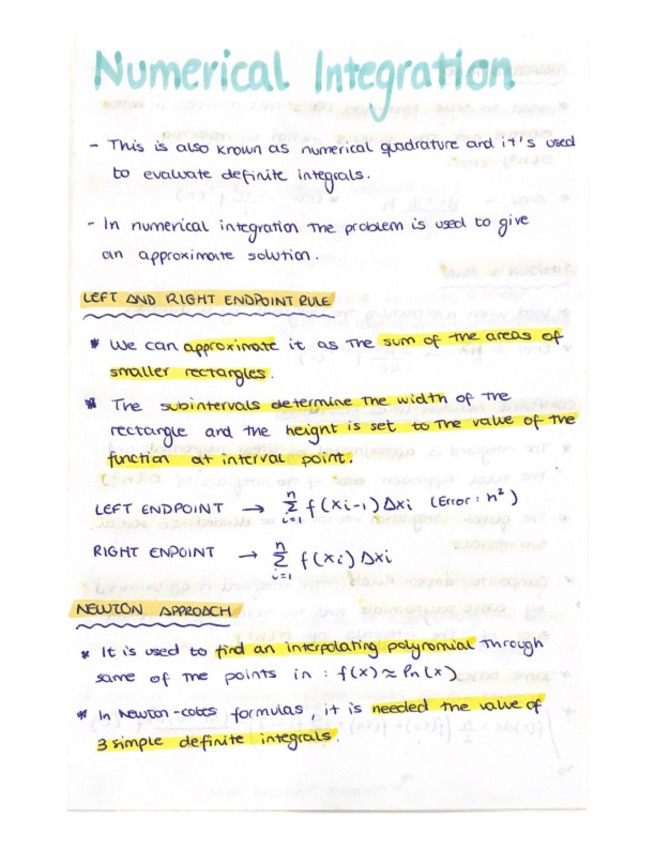 Numerical Integration
- This is also known as numerical quadrature and it's used
to evaluate definite integrals.
- In numerical integration the problem is used to give
an approximate solution.
LEFT AND RIGHT ENDPOINT RULE
* We can approximate it as the sum of the areas of
smaller rectangles.
* The subintervals determine the width of the
rectangle and the height is set to the value of the
function at interval point.
LEFT ENDPOINT → n∑i=1 f(xi-1)Δxi (Error: h²)
RIGHT ENPOINT → n∑i=1 f(xi)Δxi
NEWTON APPROACH
* It is used to find an interpolating polynomial through
some of the points in : f(x) ≈ Pn(x)
* In Newton-cotes formulas, it is needed the value of
3 simple definite integrals.